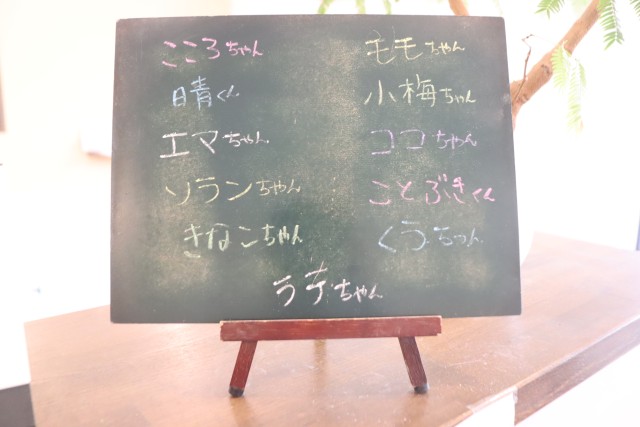 こころちゃん
晴くん
エマちゃん
ソランちゃん
きなこちゃん
モモちゃん
小梅ちゃん
ココちゃん
ことぶきくん
くうちゃん
ラテちゃん